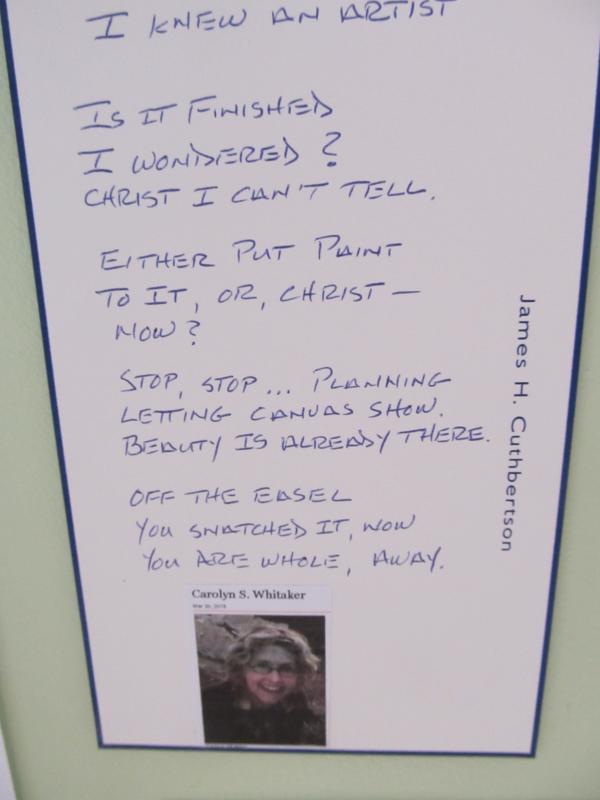 I KNEW AN ARTIST
IS IT FINISHED
I WONDERED?
CHRIST I CAN'T TELL.
EITHER PUT PAINT
TO IT, OR, CHRIST —
NOW?
STOP, STOP... PLANNING
LETTING CANVAS SHOW.
BEAUTY IS ALREADY THERE.
OFF THE EASEL
YOU SNATCHED IT, NOW
YOU ARE WHOLE, AWAY.
James H. Cuthbertson
Carolyn S. Whitaker